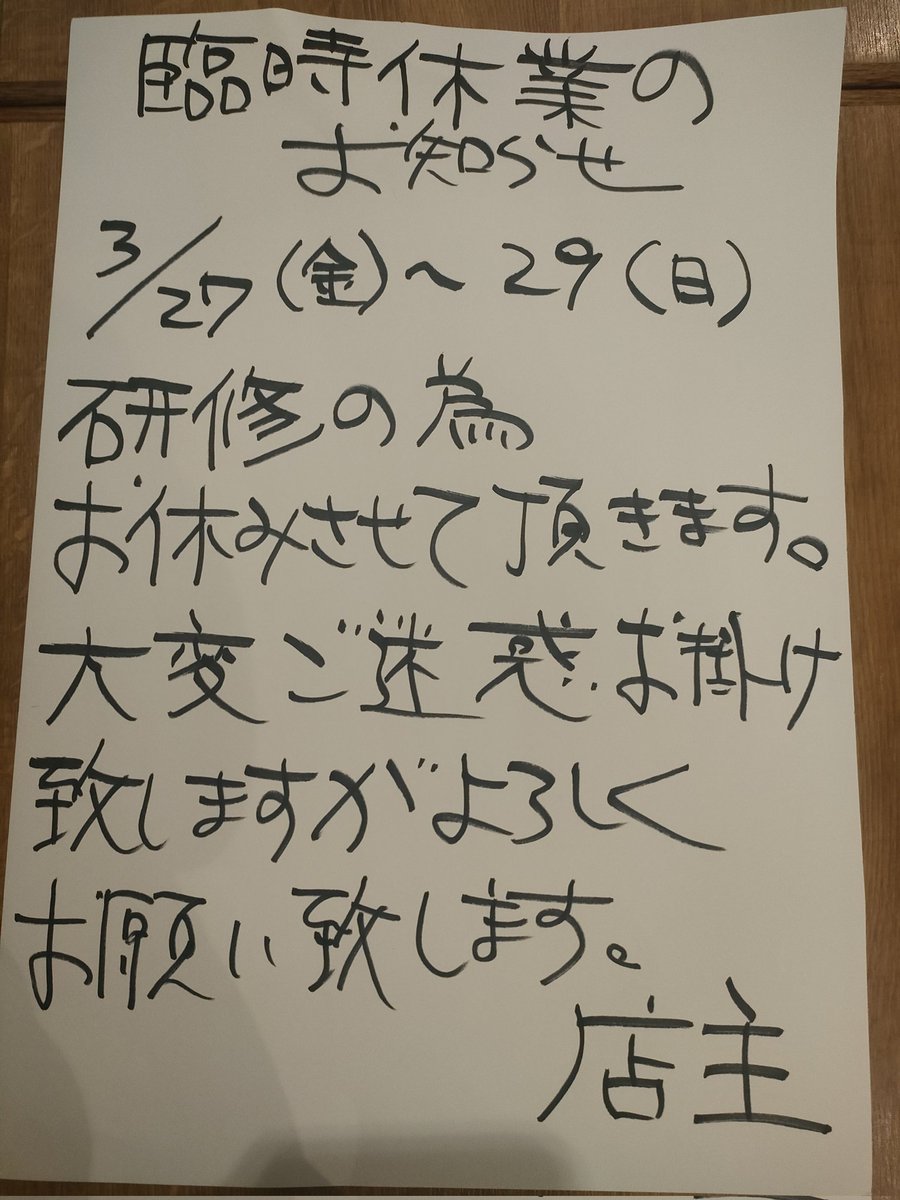 臨時休業の
お知らせ
3/27(金)～29(日)
研修の為
お休みさせて頂きます。
大変ご迷惑お掛け
致しますがよろしく
お願い致します。
店主